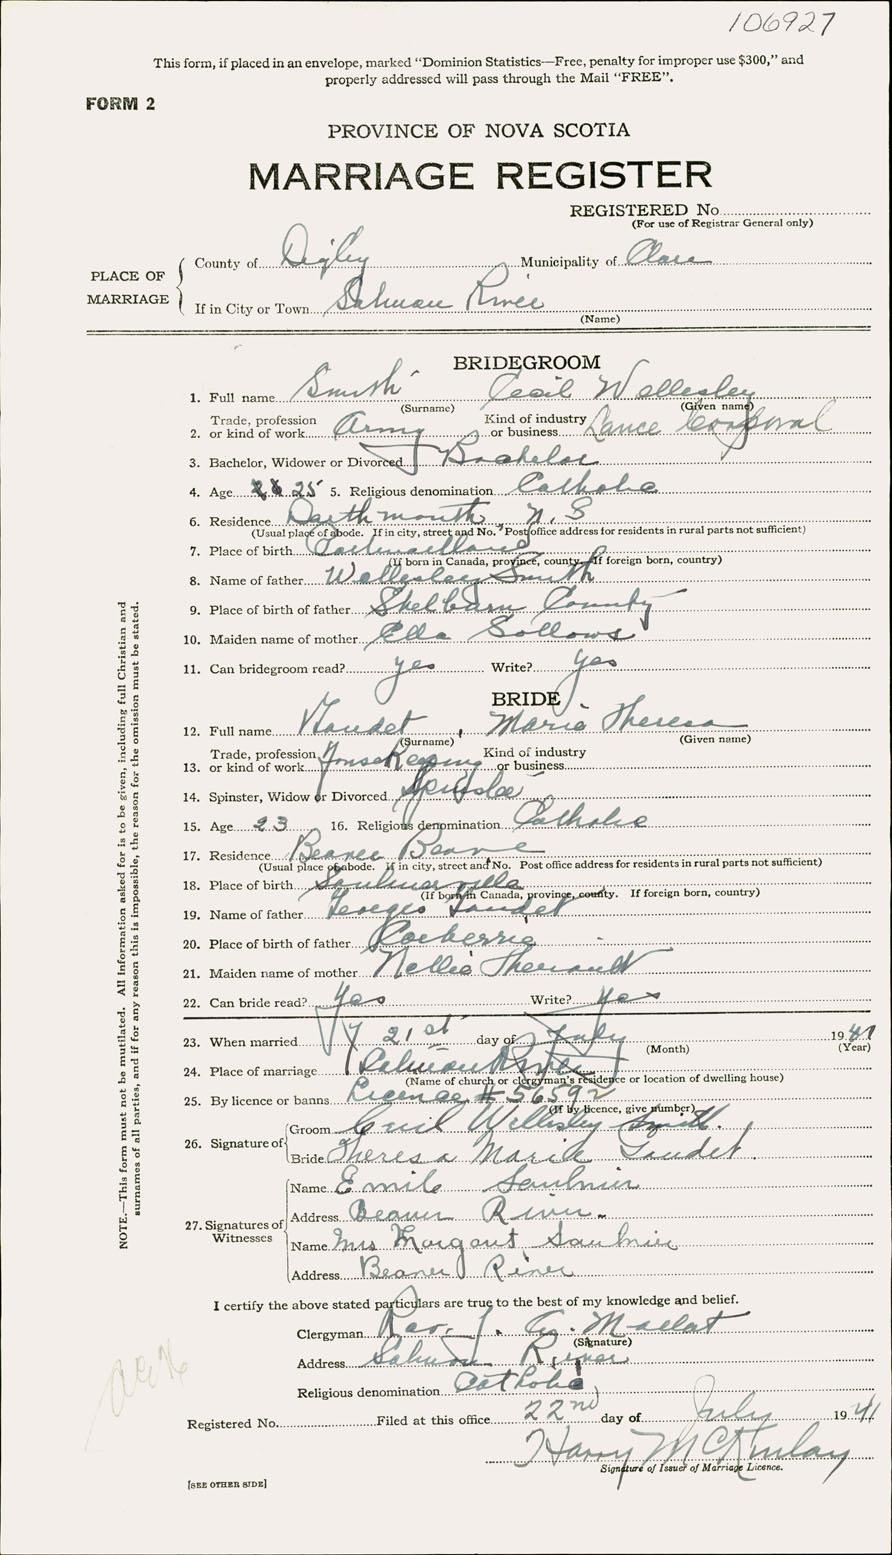 106927
This form, if placed in an envelope, marked “Dominion Statistics—Free, penalty for improper use $300,” and
properly addressed will pass through the Mail “FREE”.
FORM 2
PROVINCE OF NOVA SCOTIA
MARRIAGE REGISTER
REGISTERED No.
(For use of Registrar General only)
PLACE OF MARRIAGE
County of Digby Municipality of Clare
If in City or Town Salmon River
(Name)
BRIDEGROOM
1. Full name Smith Cecil Wellesley
(Surname) (Given name)
2. Trade, profession or kind of work Army Kind of industry or business Lance Corporal
3. Bachelor, Widower or Divorced Bachelor
4. Age 25 5. Religious denomination Catholic
6. Residence Dartmouth N. S
(Usual place of abode. If in city, street and No. Post office address for residents in rural parts not sufficient)
7. Place of birth
(If born in Canada, province, county. If foreign born, country)
8. Name of father Wellesley Smith
9. Place of birth of father Shelburn County
10. Maiden name of mother Ella Sollows
11. Can bridegroom read? yes Write? yes
BRIDE
12. Full name Gaudet, Marie Theresa
(Surname) (Given name)
13. Trade, profession or kind of work House Keeping Kind of industry or business
14. Spinster, Widow or Divorced Spinster
15. Age 23 16. Religious denomination Catholic
17. Residence Beaver
(Usual place of abode. If in city, street and No. Post office address for residents in rural parts not sufficient)
18. Place of birth Saulnierville
(If born in Canada, province, county. If foreign born, country)
19. Name of father Georges Gaudet
20. Place of birth of father
21. Maiden name of mother Nellie Theriault
22. Can bride read? Yes Write? Yes
23. When married 21st day of July 1941
(Month) (Year)
24. Place of marriage Salmon River
(Name of church or clergyman’s residence or location of dwelling house)
25. By licence or banns License # 56592
(If by licence, give number)
26. Signature of
Groom Cecil Wellesley Smith.
Bride Theresa Marie Gaudet.
27. Signatures of Witnesses
Name Emile Saulnier
Address Beaver River.
Name Mrs Margaret Saulnier
Address Beaver River
I certify the above stated particulars are true to the best of my knowledge and belief.
Clergyman Rev. J. A. Mallat
(Signature)
Address Salmon River
Religious denomination Catholic
Registered No. Filed at this office 22nd day of July 1941
Harry McKinlay
Signature of Issuer of Marriage Licence.
[SEE OTHER SIDE]
NOTE.—This form must not be mutilated. All Information asked for is to be given, including full Christian and
surnames of all parties, and if for any reason this is impossible, the reason for the omission must be stated.